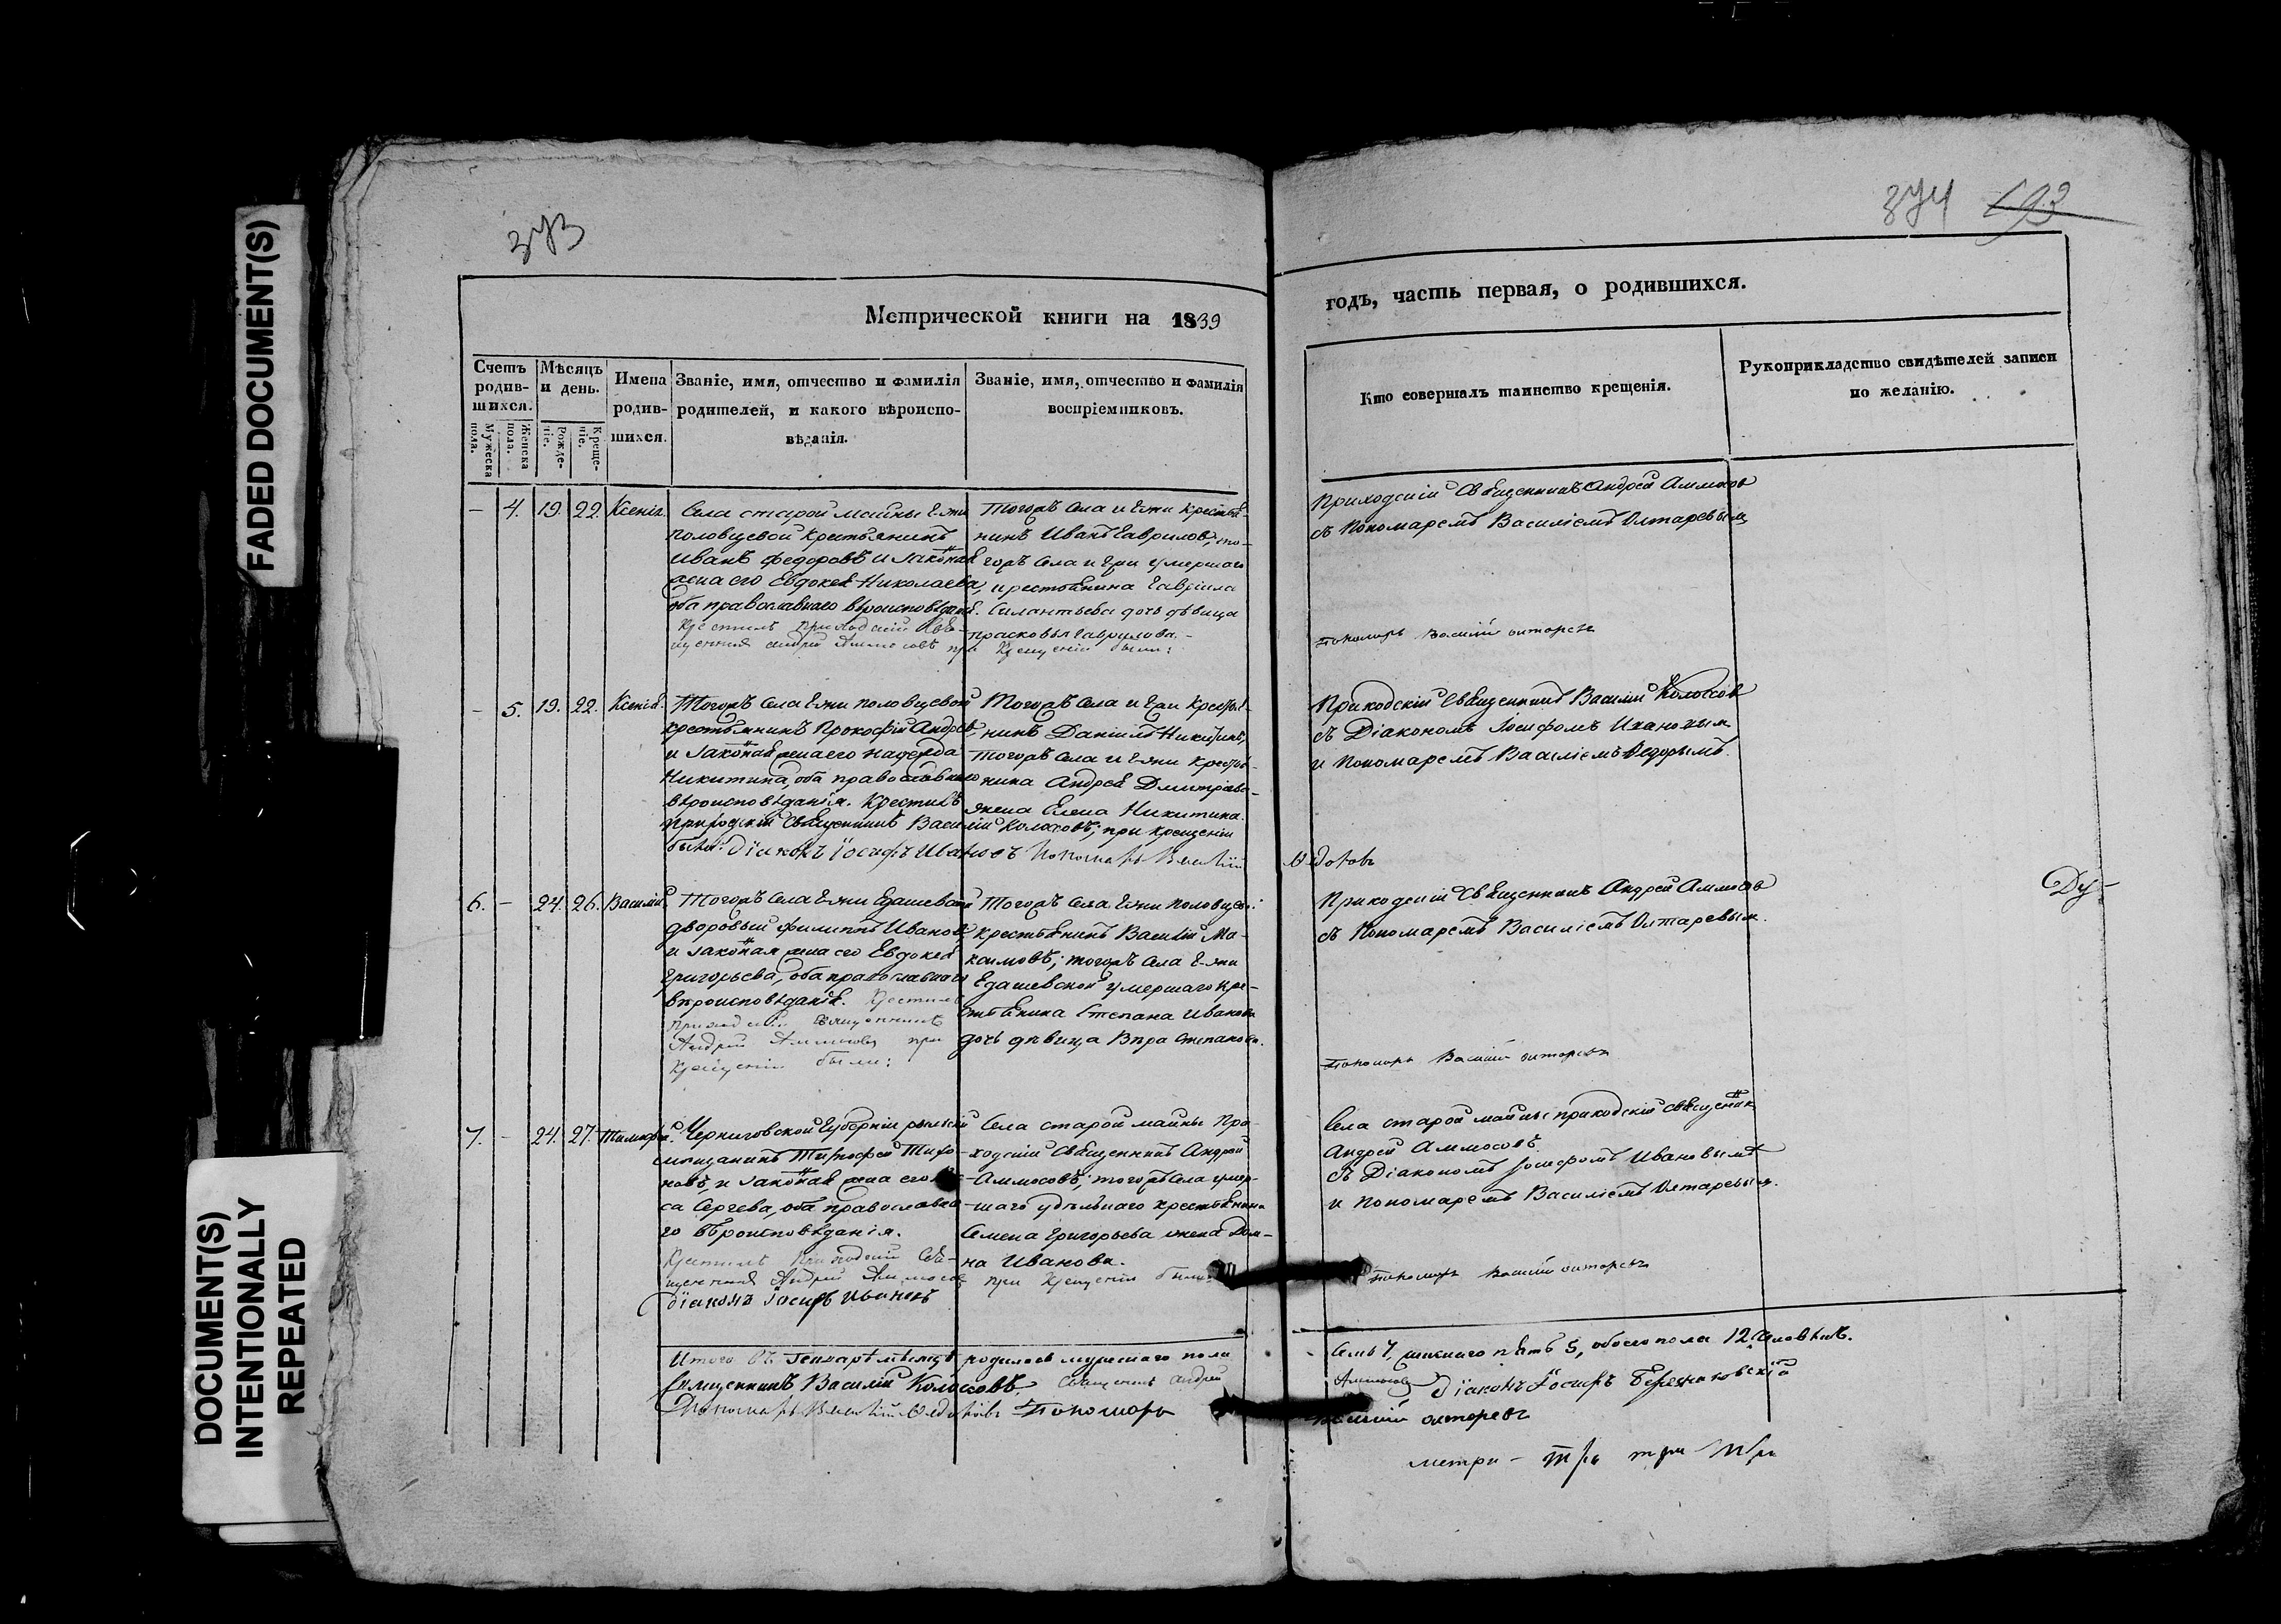 FADED DOCUMENT(S)
DOCUMENT(S)
INTENTIONALLY
REPEATED
373
374 593
Метрической книги на 1839
годъ, часть первая, о родившихся.
Счетъ родив-шихся.
Мужеска пола.
Женска пола.
Мѣсяцъ и день.
Рожде-ніе.
Креще-ніе.
Имена родив-шихся.
Званіе, имя, отчество и фамилія
родителей, и какого вѣроиспо-
вѣданія.
Званіе, имя, отчество и фамилія
воспріемниковъ.
Кто совершалъ таинство крещенія.
Рукоприкладство свидѣтелей записи
по желанію.
– 4. 19. 22. Ксенія.
Села старой майны Г-жи
половцевой крестьянинъ
Иванъ Федоровъ и законная
жена его Евдокея Николаева,
оба православнаго вѣроисповѣданія.
Крестилъ приходскій Свя-
щенникъ Андрей Аммосовъ при крещеніи были:
Тогожъ села и Г-жи крестья-
нинъ Иванъ Гавриловъ, то-
гожъ села и Г-жи умершаго
крестьянина Гавріила
Силантьева дочь дѣвица
прасковья Гаврилова.
Приходскій Священникъ Андрей Аммосов
съ Пономаремъ Василіемъ Олтаревым
Пономарь Василій олторевъ
– 5. 19. 22. Ксенія.
Тогожъ села Г-жи половцевой
крестьянинъ Прокофій Андреев
и законная жена его надежда
Никитина, оба православнаго
вѣроисповѣданія. Крестилъ
приходскій Священникъ Василій Колосовъ; при крещеніи
были: діаконъ Іосифъ Ивановъ Пономарь Василій
Ѳедотовъ
Тогожъ села и Г-жи крестья-
нинъ Даніилъ Никитинъ,
тогожъ села и Г-жи крестья-
нина Андрея Дмитріева
жена Елена Никитина.
Приходскій Священникъ Василій Колосов
съ Діакономъ Іосифомъ Ивановым
и Пономаремъ Василіемъ
6. – 24. 26. Василій.
Тогожъ села Г-жи
дворовый Филиппъ Иванов
и законная жена его Евдокея
Григорьева, оба православнаго
вѣроисповѣданія. Крестилъ
приходскій Священникъ
Андрей Аммосовъ при
крещеніи были:
Тогожъ села Г-жи половцево:
крестьянинъ Василій Ма-
ксимовъ; тогожъ села Г-жи
умершаго кре-
стьянина Степана Иванова
дочь дѣвица Вѣра Степанова.
Приходскій Священникъ Андрей Аммосов
съ Пономаремъ Василіемъ Олтаревым.
Пономарь Василій олторевъ
Ду-
7. – 24. 27. Тимофей.
Черниговской Губерніи
мѣщанинъ Тимофей Тихо-
новъ, и законная жена его
са Сергева, оба православна-
го вѣроисповѣданія.
Крестилъ приходскій Свя-
щенникъ Андрей Аммосовъ при крещеніи были:
діаконъ Іосифъ Ивановъ
Села старой майны При-
ходскій Священникъ Андрей
Аммосовъ; тогожъ села умер-
шаго удѣльнаго крестьянина
Семена Григорьева жена Дом-
на Иванова.
Села старой майны приходскій священник
Андрей Аммосовъ
съ Діакономъ Іосифомъ Ивановымъ
и Пономаремъ Василіемъ Олтаревым.
Пономарь Василій олторевъ
Итого въ Генварѣ мѣсяцѣ родилось мужескаго пола
семь 7, женскаго пять 5, обоего пола 12 человѣкъ.
Священникъ Василій Колосовъ, Священникъ Андрей
Аммосовъ Діаконъ Іосифъ
Пономарь Василій Ѳедотовъ Пономарь
Василій олторевъ
метри –